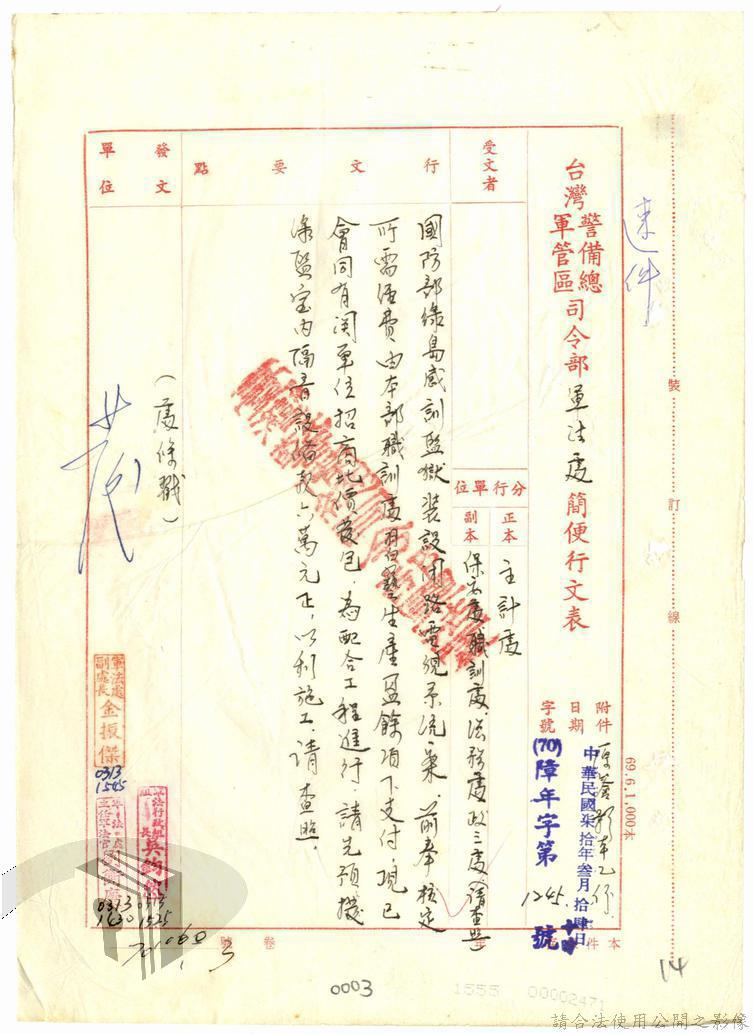 速件
裝 訂 線
69.6.1,000本
台灣警備總軍管區司令部軍法處簡便行文表
附件
日期 中華民國柒拾年叁月拾肆日
字號 (70)障年字第1245號
本件
受文者
分行單位
正本 主計處
副本 保安處職訓處、法務處政三處、請查照
行文要點
國防部綠島感訓監獄裝設閉路電視系統案,前奉核定
所需經費由本部職訓處羽毛生產盈餘項下支付,現已
會同有關單位招商比價發包,為配合工程進行,請先預撥
綠監室內隔音設備款六萬元正,以利施工,請查照。
發文單位
(處條戳)
軍法處副處長金振傑
0313
1545
0313
1525
0313
1430
卷號
3
0003
1555 00002471
14
請合法使用公開之影像